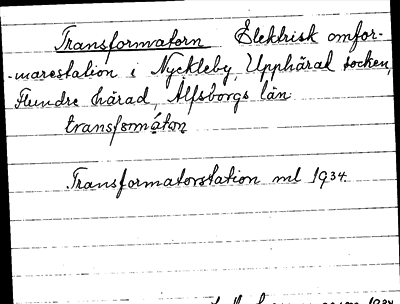 Transformatorn Elektrisk omfor-
-marestation i Nyckleby, Upphärad socken,
Flundre härad, Älfsborgs län
transformàton
Transformatorstation ml 1934.
1934